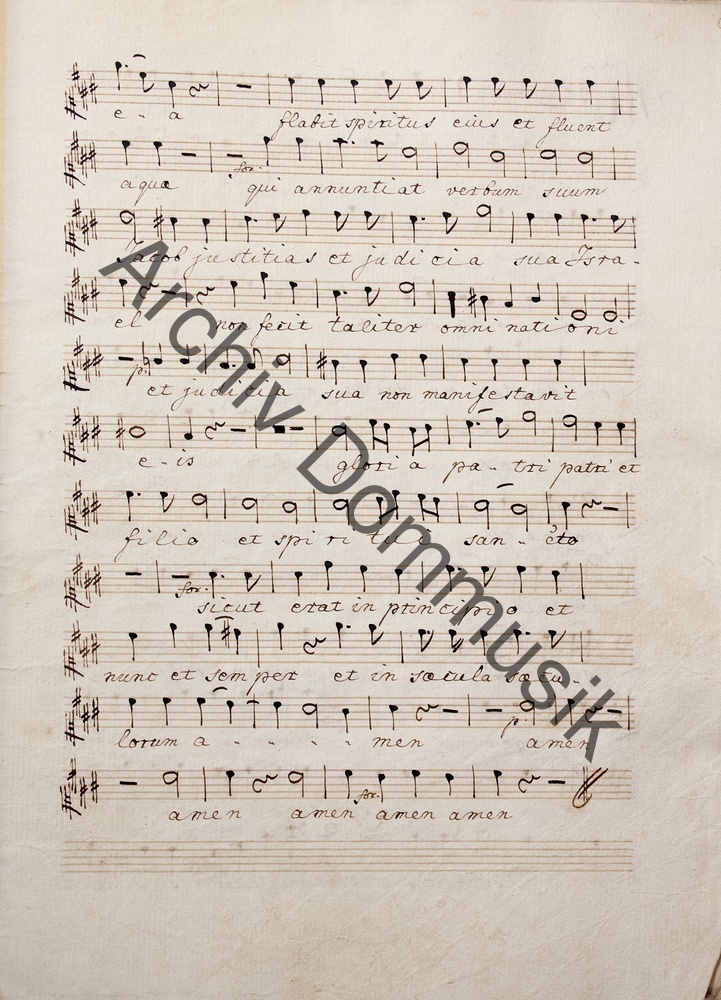 e - a flabit spiritus eius et fluent
aquæ for: qui annuntiat verbum suum
Jacob justitias et judicia sua Isra-
el non fecit taliter omni nationi
p: et judicia sua non manifestavit
e - is gloria pa - tri patri et
filio et spiritui san - cto
for: sicut erat in principio et
nunc et semper et in sæcula sæcu-
lorum a - - - - men p: amen
amen amen for: amen amen
Archiv Dommusik